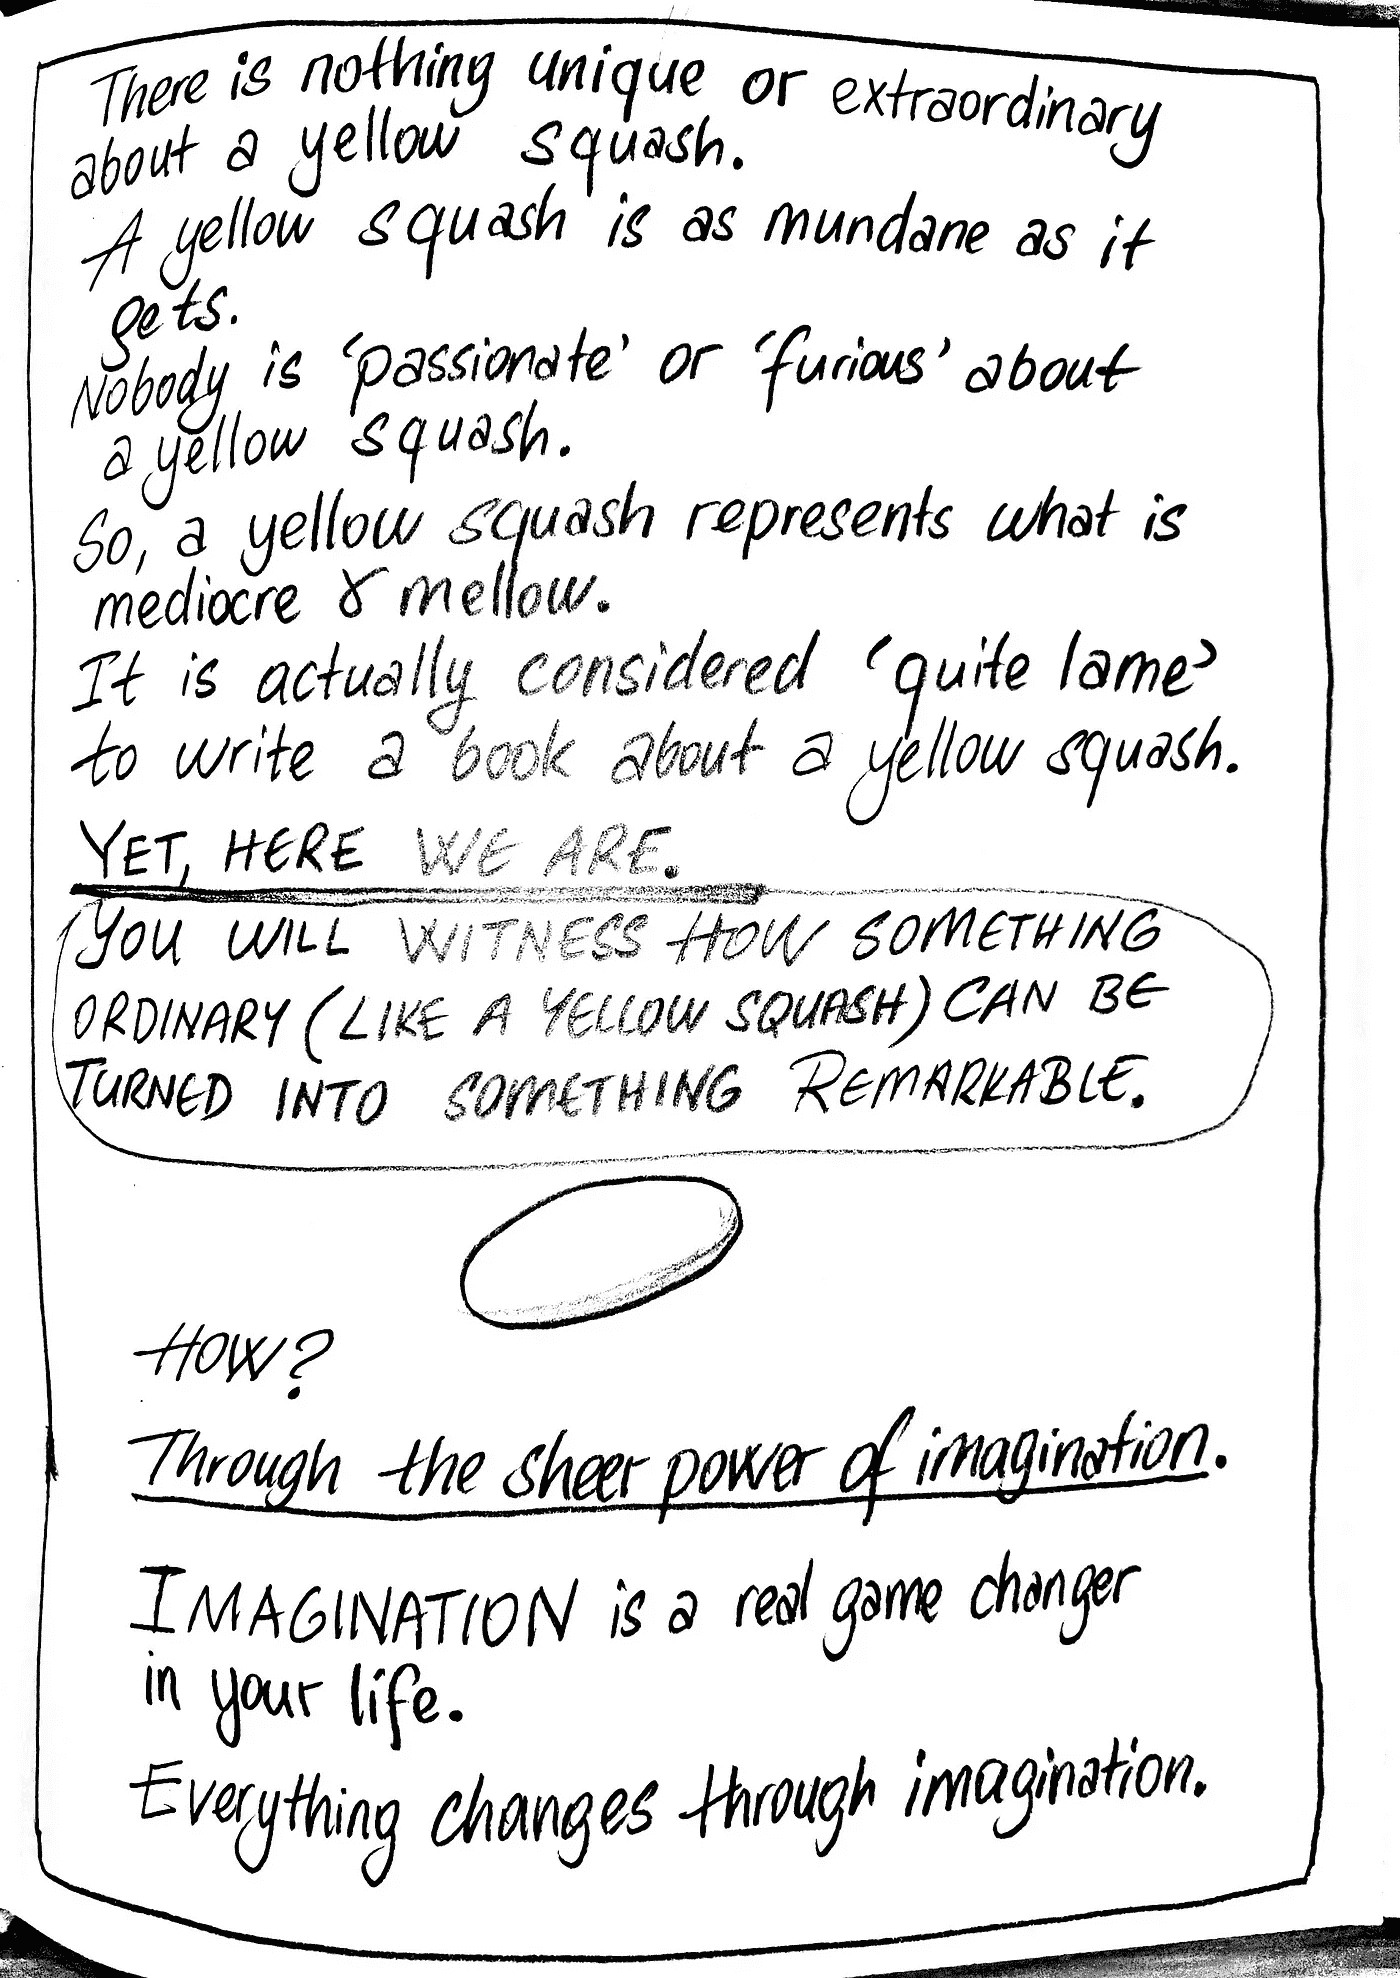 There is nothing unique or extraordinary
about a yellow squash.
A yellow squash is as mundane as it
gets.
Nobody is 'passionate' or 'furious' about
a yellow squash.
So, a yellow squash represents what is
mediocre & mellow.
It is actually considered 'quite lame'
to write a book about a yellow squash.
YET, HERE WE ARE.
YOU WILL WITNESS HOW SOMETHING
ORDINARY (LIKE A YELLOW SQUASH) CAN BE
TURNED INTO SOMETHING REMARKABLE.
HOW?
Through the sheer power of imagination.
IMAGINATION is a real game changer
in your life.
Everything changes through imagination.